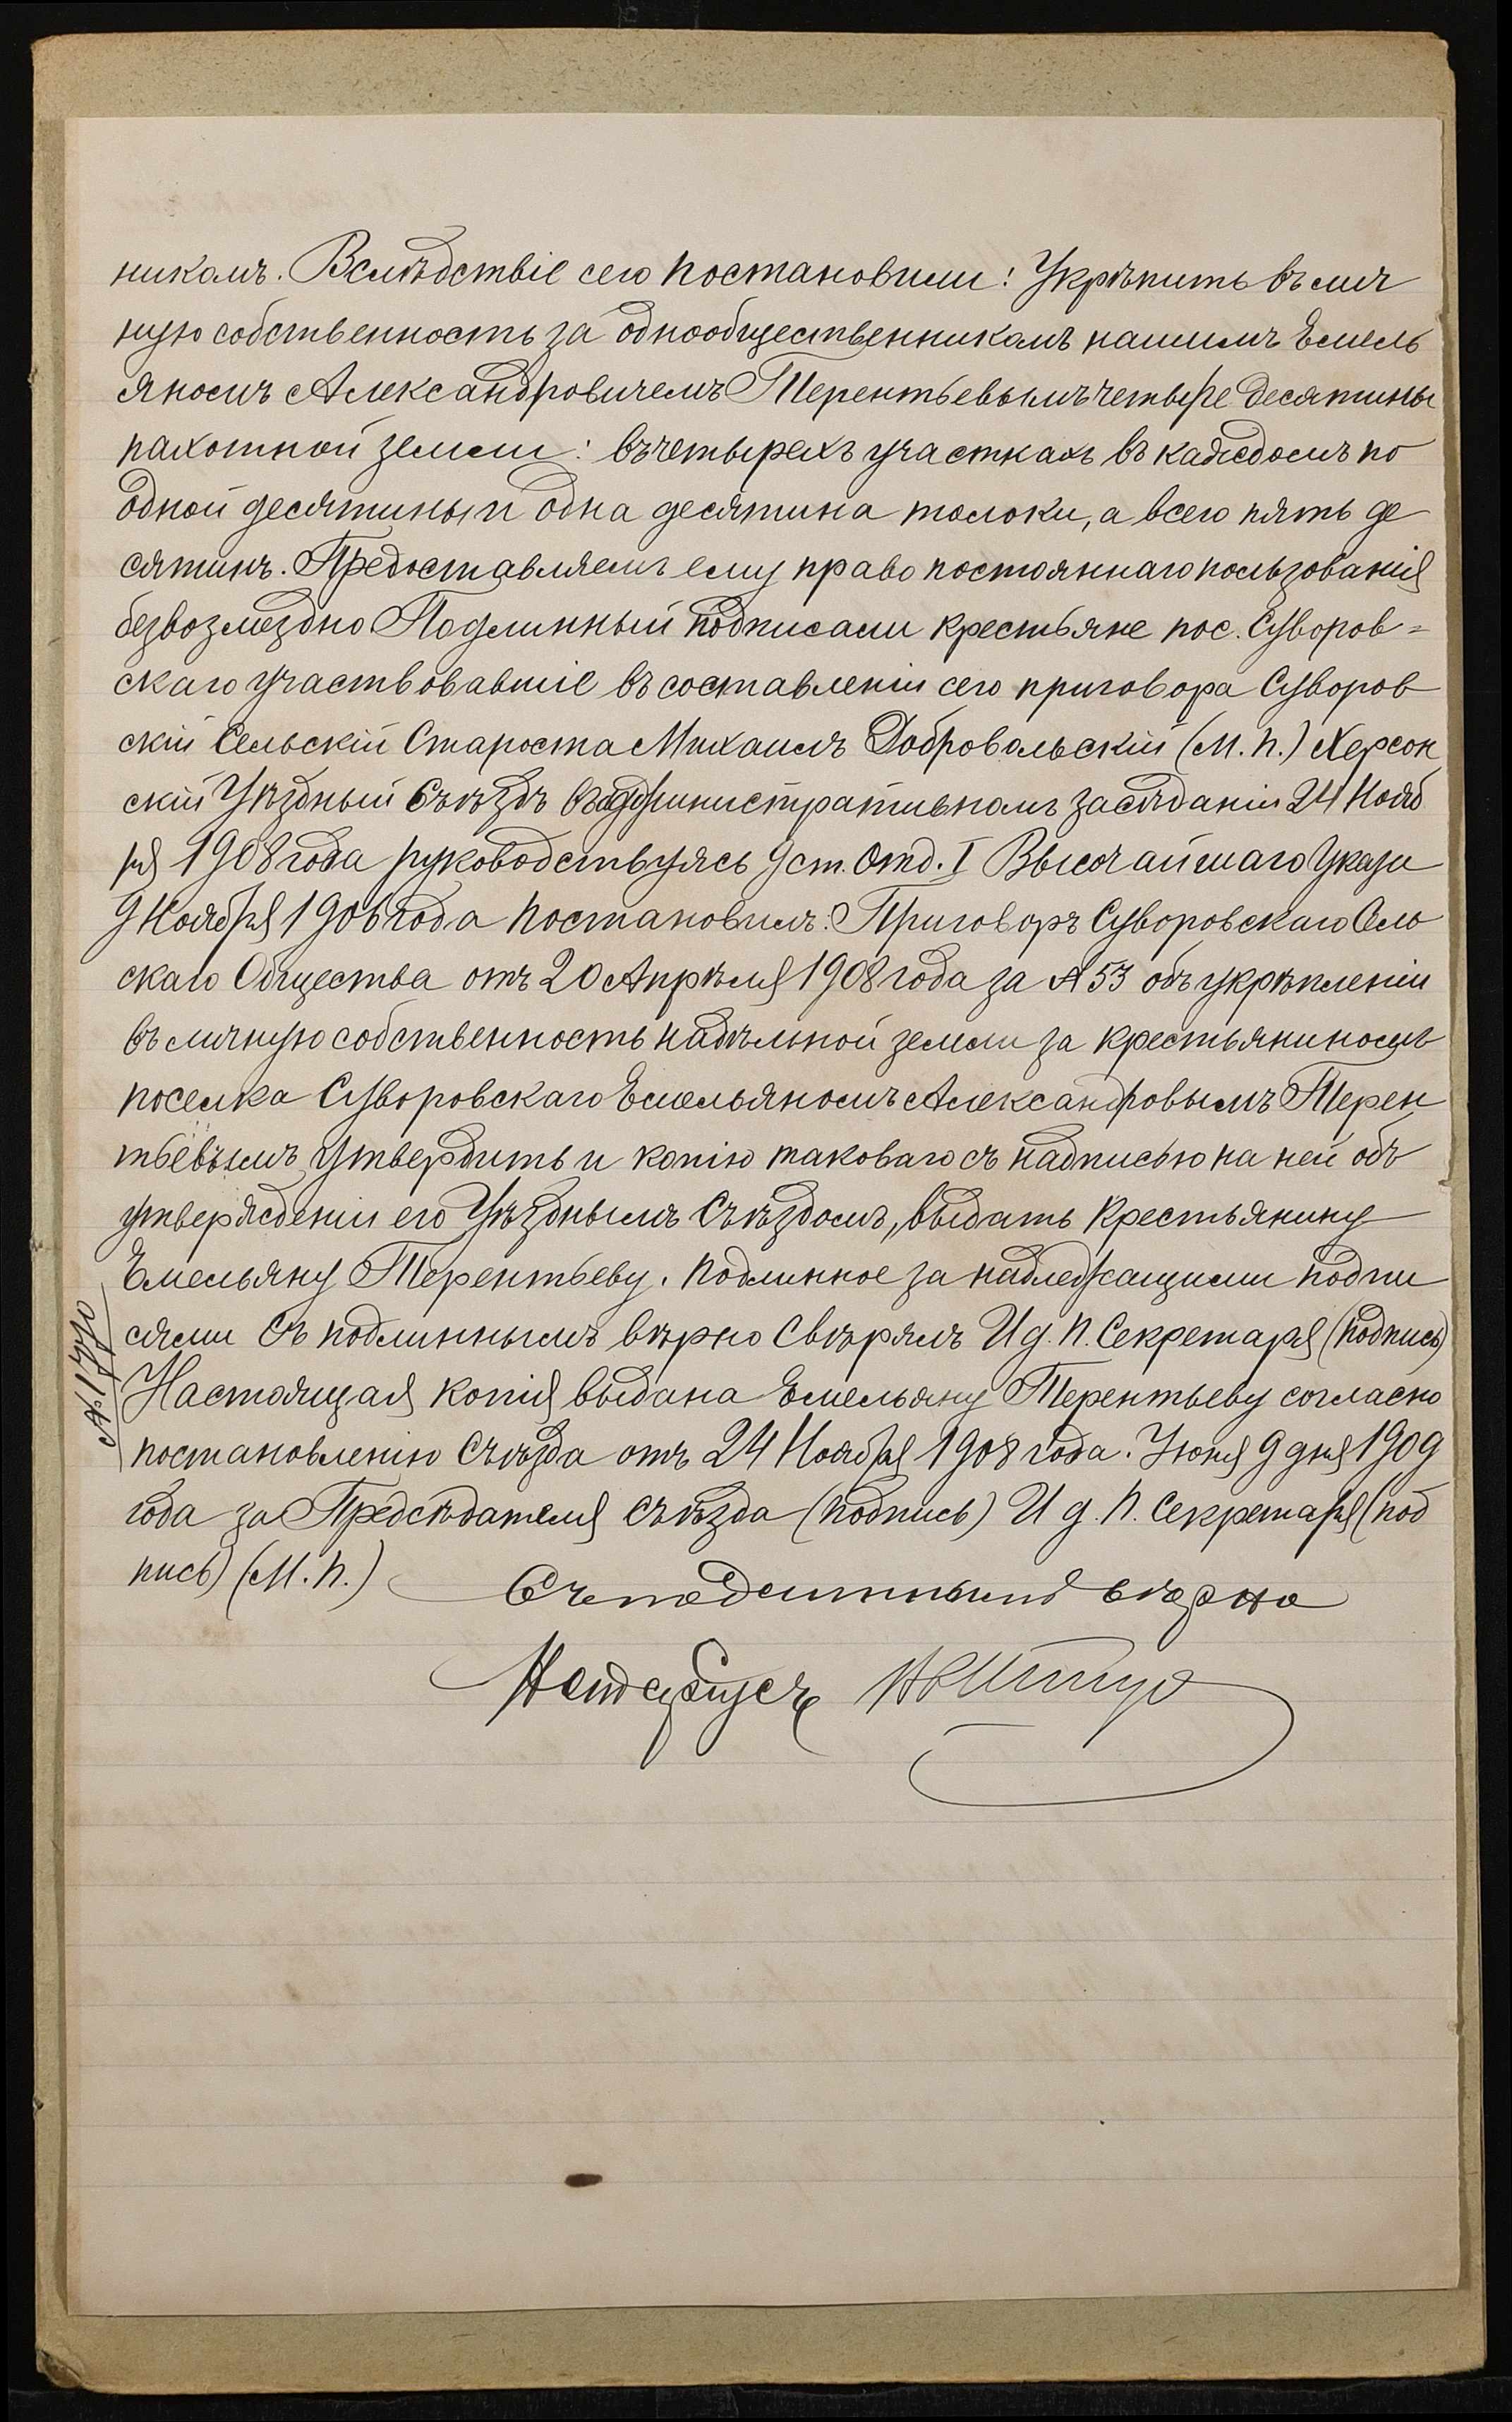 никомъ. Вслѣдствіе сего постановили: Укрѣпить въ лич
ную собственность за однообщественникомъ нашимъ Емель
яномъ Александровичемъ Терентьевымъ четыре десятины
пахотной земли: въ четырехъ участкахъ въ каждомъ по
одной десятины и одна десятина толоки, а всего пять де
сятинъ. Предоставляемъ ему право постояннаго пользованія
безвозмездно Подлинный подписали крестьяне пос. Суворов=
скаго участвовавшіе въ составленіи сего приговора Суворов
скій Сельскій Староста Михаилъ Добровольскій (М.П.) Херсон
скій Уѣздный Съѣздъ въ административномъ засѣданіи 24 Нояб
ря 1908 года руководствуясь 9 ст. Отд. I Высочайшаго Указа
9 Ноября 1906 года постановилъ: Приговоръ Суворовскаго Сель
скаго Общества отъ 20 Апрѣля 1908 года за № 53 объ укрѣпленіи
въ личную собственность надѣльной земли за крестьяниномъ
поселка Суворовскаго Емельяномъ Александровымъ Терен
тьевымъ утвердить и копію таковаго съ надписью на ней объ
утвержденіи его Уѣзднымъ Съѣздомъ, выдать крестьянину
Емельяну Терентьеву. Подлинное за надлежащими подпи
сями Съ подлиннымъ вѣрно Свѣрялъ И д. П. Секретаря (подпись)
Настоящая копія выдана Емельяну Терентьеву согласно
постановленію Съѣзда отъ 24 Ноября 1908 года. Іюня 9 дня 1909
года за Предсѣдателя Съѣзда (подпись) И д. П. Секретаря (под
пись) (М.П.)
Съ подлиннымъ вѣрно
Нотаріусъ